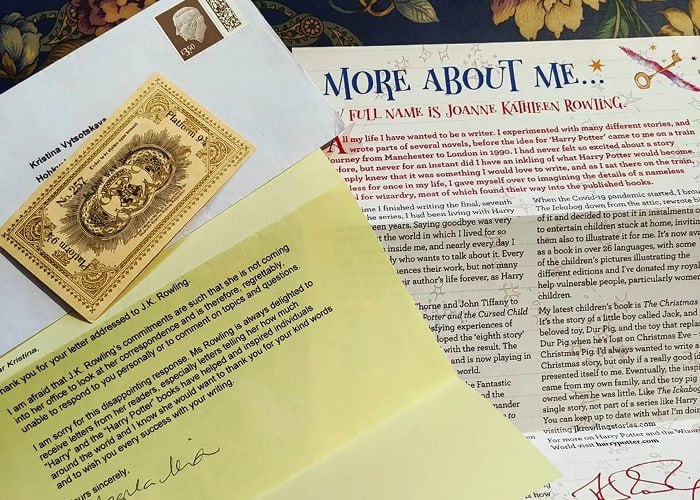 £3.50
Kristina Vytsotskaya
Platform 9¾
Platform 9¾
MORE ABOUT ME...
FULL NAME IS JOANNE KATHLEEN ROWLING.
All my life I have wanted to be a writer. I experimented with many different stories, and
wrote parts of several novels, before the idea for 'Harry Potter' came to me on a train
journey from Manchester to London in 1990. I had never felt so excited about a story
but never for an instant did I have an inkling of what Harry Potter would become.
knew that it was something I would love to write, and as I sat there on the train,
for once in my life, I gave myself over to imagining the details of a nameless
for wizardry, most of which found their way into the published books.
time I finished writing the final, seventh
the series, I had been living with Harry
years. Saying goodbye was very
the world in which I lived for so
inside me, and nearly every day I
who wants to talk about it. Every
ences their work, but not many
r author's life forever, as Harry
horne and John Tiffany to
Potter and the Cursed Child
isfying experiences of
loped the 'eighth story'
with the result. The
and is now playing in
world.
the Fantastic
and the
mander
to
When the Covid-19 pandemic started, I brought
The Ickabog down from the attic, rewrote
of it and decided to post it in instalments
to entertain children stuck at home, inviting
them also to illustrate it for me. It's now
as a book in over 26 languages, with some
of the children's pictures illustrating the
different editions and I've donated my
help vulnerable people, particularly women
children.
My latest children's book is The Christmas
It's the story of a little boy called Jack, and
beloved toy, Dur Pig, and the toy that
Dur Pig when he's lost on Christmas Eve –
Christmas Pig. I'd always wanted to write a
Christmas story, but only if a really good
presented itself to me. Eventually, the
came from my own family, and the toy pig
owned when he was little. Like The Ickabog
single story, not part of a series like Harry
You can keep up to date with what I'm doing
visiting jkrowlingstories.com
For more on Harry Potter and the Wizarding
World visit harrypotter.com
Kristina,
Thank you for your letter addressed to J.K. Rowling.
I am afraid that J.K. Rowling's commitments are such that she is not coming
into her office to look at her correspondence and is therefore, regrettably,
unable to respond to you personally or to comment on topics and questions.
I am sorry for this disappointing response. Ms Rowling is always delighted to
receive letters from her readers, especially letters telling her how much
"Harry" and the "Harry Potter" books have helped and inspired individuals
around the world and I know she would want to thank you for your kind words
and to wish you every success with your writing.
Yours sincerely,